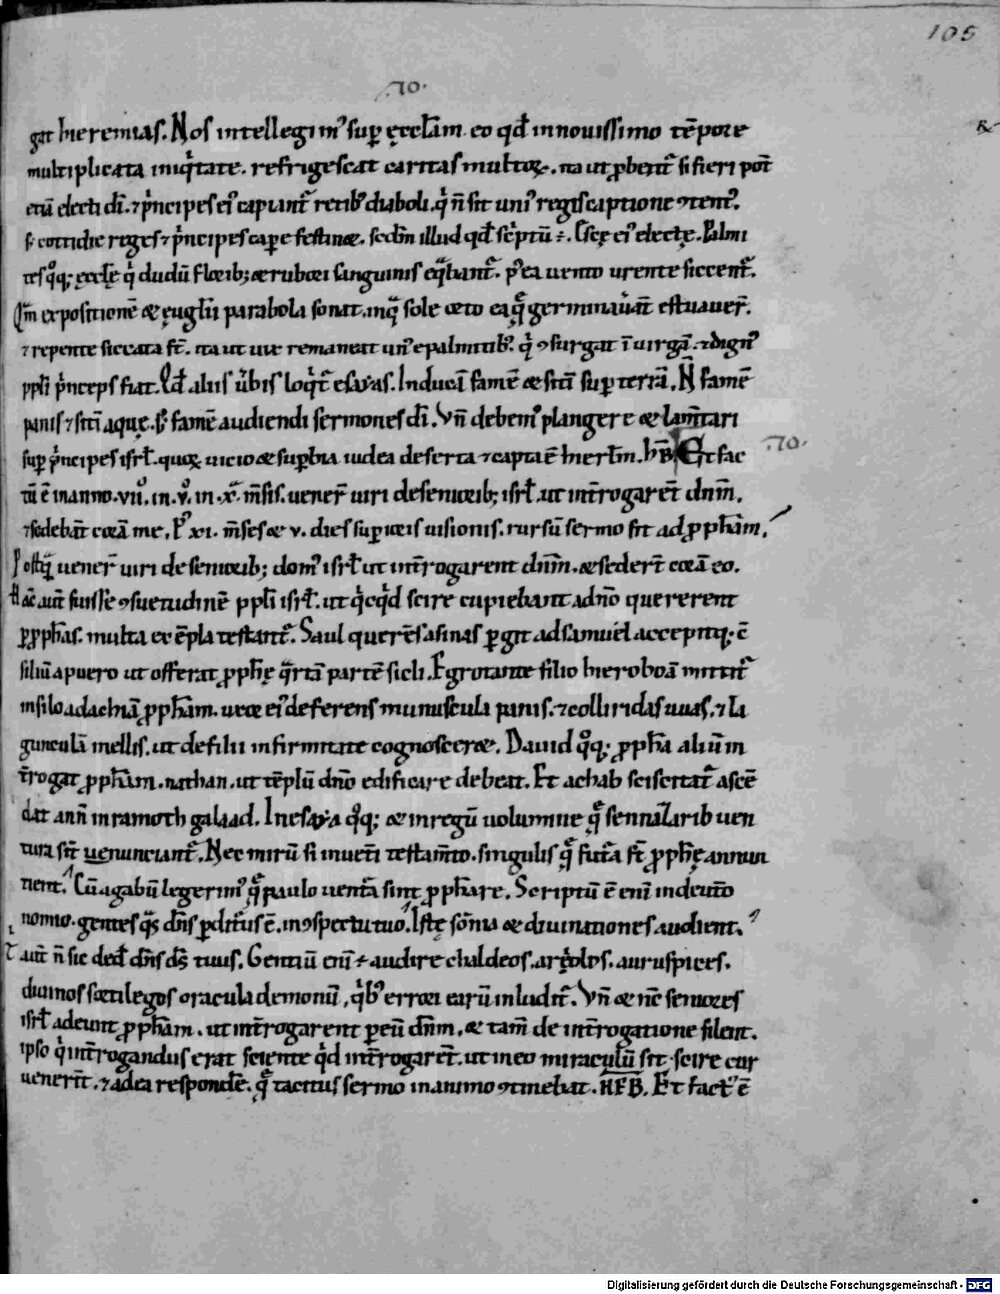 105
.70.
gat hieremias. Nos intellegim᷒ sup̱ ęccl̄am. eo qd̄ innouissimo tēpore
multiplicata iniq̇tate. refrigescat caritas multoꝝ. ita ut p̱bent̄ si fieri pot̄
etiā electi dī. ⁊ ṗncipes ei᷒ capiant̄ retib᷒ diaboli. q̇ n̄ sit uni᷒ regis captione ꝯtent᷒.
s; cottidie reges ⁊ ṗncipes cap̱e festinat. sedm̄ illud qd̄ sċptū ÷. Escę ei᷒ electę. Palmi
tes q̊q; ęcclę q̇ dudū floꝛib; ⁊ ruboꝛi sanguinis eq̄bant̄. p᷒ ea uento urente siccent̄.
Qm̄ expositionē & ęuglii parabola sonat. inq̄ sole oꝛto ea q̄ germinauāt estuauer̄.
⁊ repente siccata st̄. ita ut uix remaneat un᷒ e palmitib᷒. q̇ ꝯsurgat ī uirgā. ⁊ dign᷒
ppl̄i ṗnceps fiat. Qd̄ aliis ūbis loq̇t̄ esayas. Inducā famē & sitī sup̱ terrā. N̄ famē
panis ⁊ sitī aquę. s; famē audiendi sermones dī. Vn̄ debem᷒ plangere & lam̄tari
sup̱ ṗncipes isrl̄. quoꝝ uicio & sup̱bia iudea deserta ⁊ capta ē hierl̄m. hB̄ Et fac 70.
tū ē in anno. vii᷎. in. v᷎. in. x᷎. m̄sis. uener̄ uiri de senioꝛib; isrl̄. ut int̄rogarēt dn̄m.
⁊ sedebāt coꝛā me. P᷒ xi. m̄ses & v. dies sup̱ioꝛis uisionis. rursū sermo fit ad p̱ph̄am.
Postq̄ uener̄ uiri de senioꝛib; dom᷒ isrl̄ ut int̄rogarent dn̄m. & seder̄t coꝛā eo.
Hāc aut̄ fuisse ꝯsuetudinē ppl̄i isrl̄. ut q̇cq̇d scire cupiebant a dn̄o quererent
p̱ p̱ph̄as. multa exēpla testant̄. Saul querēs asinas p̱git ad samuel acceptiq; ē
siliū a puero ut offerat p̱ph̄ę q̄rtā partē sicli. Egrotante filio hieroboā mittit̄
in silo ad achiā p̱ph̄am. uxoꝛ ei᷒ deferens munuscula panis. ⁊ colliridas uuas. ⁊ la
gunculā mellis. ut de filii infirmitate cognosceret. Dauid q̊q; p̱ph̄a aliū in
t̄rogat p̱ph̄am. nathan. ut tēplū dn̄o edificare debeat. Et achab sciscitat̄ ascē
dat ann̄ in ramoth galaad. In esaya q̊q; & in regū uolumine q̄ sennaꝉarib uen
tura sit̄ uenunciant̄. Nec mirū si in uet̄i testam̄to. singulis q̄ futa st̄ p̱ph̄ę annun
tient. Cū agabū legerim᷒ q̄ paulo uenta sint p̱ph̄are. Scriptū ē enī in deut̄o
nomio. gentes q̄s dn̄s p̱ditur᷒ ē. in ꝯspectu tuo. Istę som̄nia & diuinationes audient.
T aut̄ n̄ sic ded̄ dn̄s ds̄ tuus. Gentiū enī ÷ audire chaldeos. ariolos. auruspices.
diuinos soꝛtilegos oracula demonū. q̇b᷒ erroꝛi earū inludit̄. Vn̄ & nc̄ senioꝛes
isrl̄ adeunt p̱ph̄am. ut int̄rogarent p̱ eū dn̄m. & tam̄ de int̄rogatione silent.
ipso q̇ int̄rogandus erat sciente q̇d int̄rogarēt. ut in eo miraculū sit. scire cur
uenerīt. ⁊ ad ea respondē. q̄ tacitus sermo in animo ꝯtinebat. HEB̄. Et fact᷒ ē
Digitalisierung gefördert durch die Deutsche Forschungsgemeinschaft - DFG